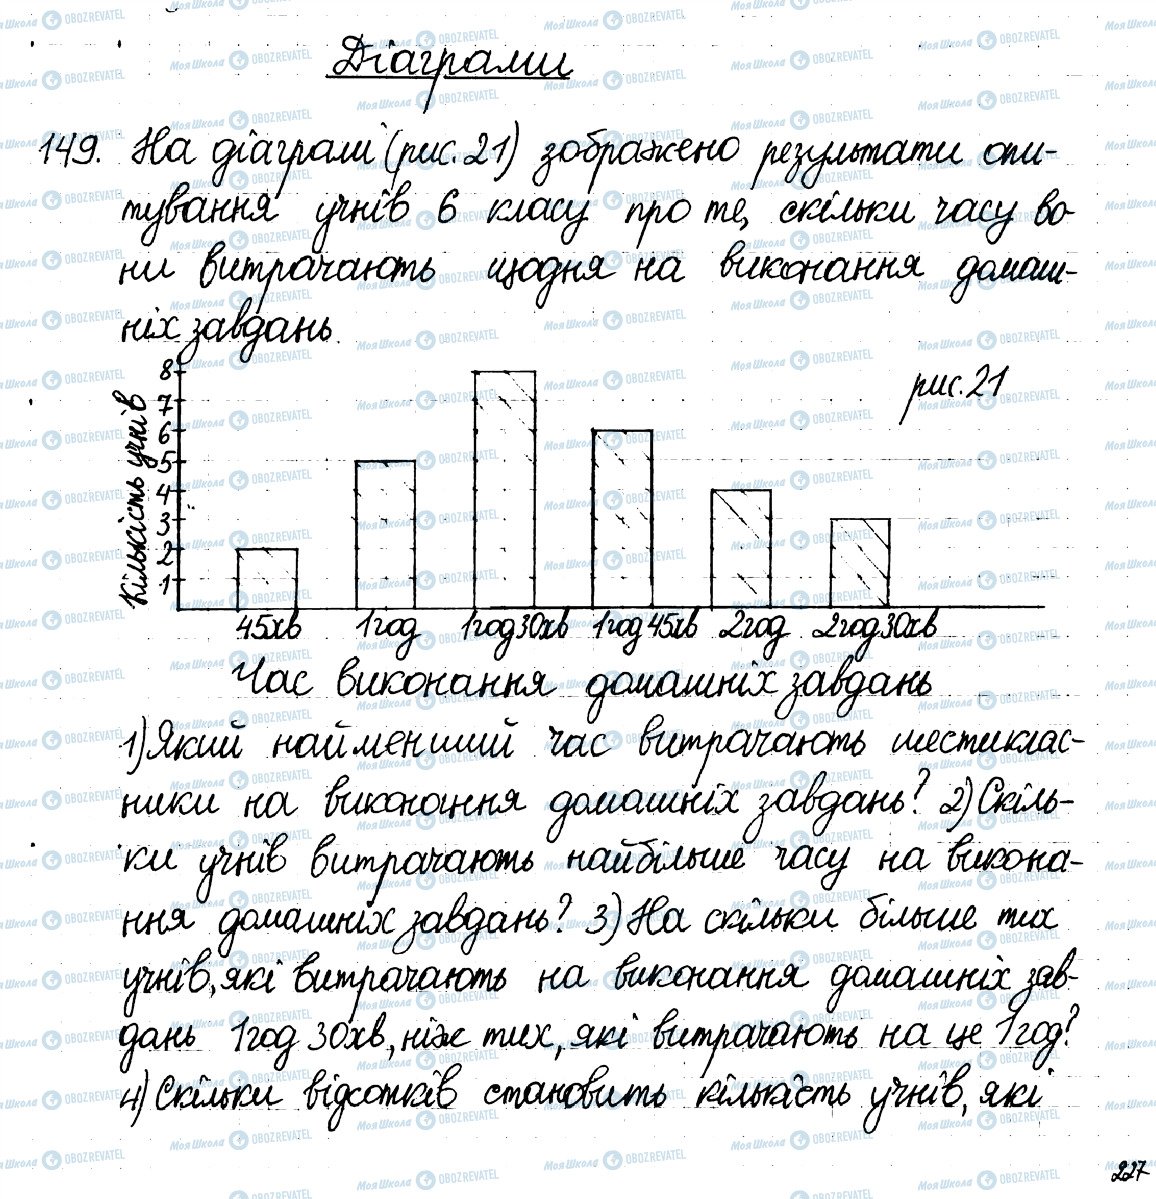 Діаграми
149. На діаграмі (рис. 21) зображено результати опи-
тування учнів 6 класу про те, скільки часу во-
ни витрачають щодня на виконання домаш-
ніх завдань.
рис. 21
Кількість учнів
8
7
6
5
4
3
2
1
45хв 1год 1год30хв 1год45хв 2год 2год30хв
Час виконання домашніх завдань
1) Який найменший час витрачають шестиклас-
ники на виконання домашніх завдань? 2) Скіль-
ки учнів витрачають найбільше часу на викона-
ння домашніх завдань? 3) На скільки більше тих
учнів, які витрачають на виконання домашніх зав-
дань 1год 30хв, ніж тих, які витрачають на це 1год?
4) Скільки відсотків становить кількість учнів, які
227
МояШкола OBOZREVATEL